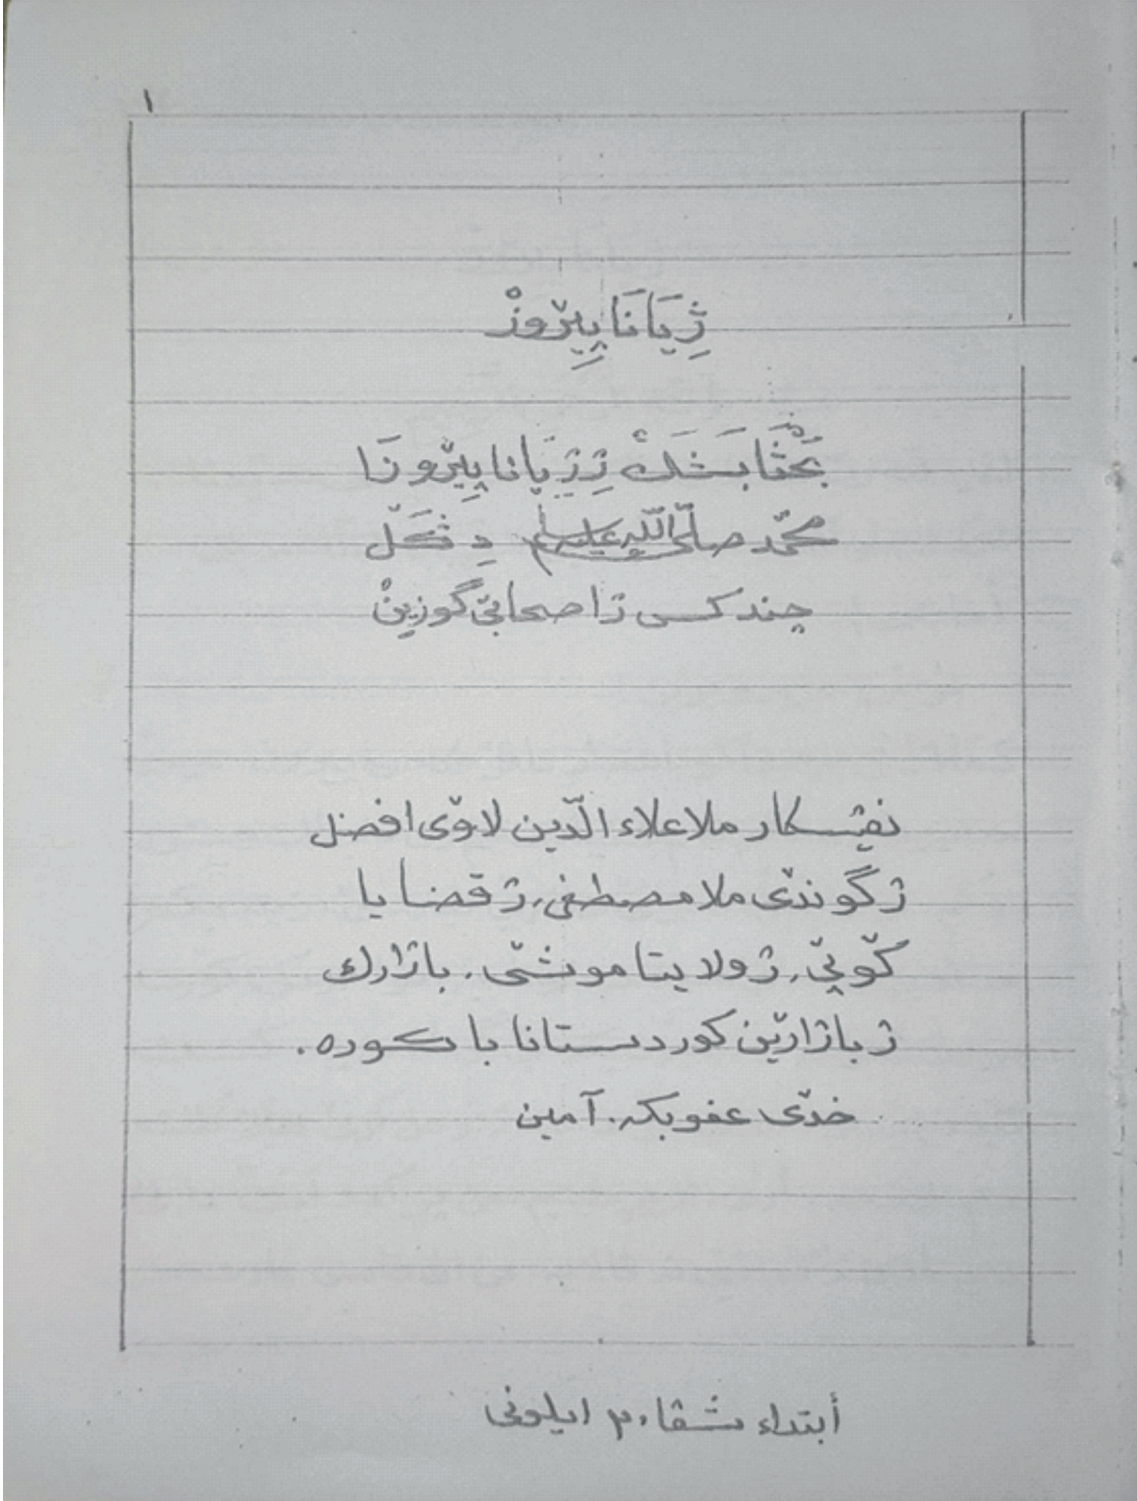 ١
ژِيَانَا پِيرُۆزْ
بَحْثَا بَشَكْ ژِ ژِيَانا پِيرۆزَا
محمّد صلّى اللّه عليه وسلم دِ ڤَگَل
چند كسى ژ اصحابێ گوزِينْ
نڤيسكار ملا علاء الدّين لاوێ افضل
ژ گوندێ ملا مصطفى، ژ قضايا
كۆپێ، ژ ولايتا موشێ، باژارك
ژ باژارێن كوردستانا باكوره.
خدێ عفو بكه. آمين
أبتداء شڤا ٣٠ ايلونى